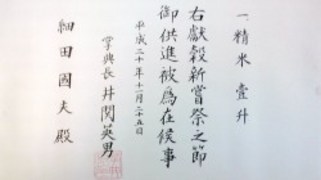 一、精米 壹升
右献穀新嘗祭之節
御供進被為在候事
平成二十年十一月二十五日
掌典長 井関英男
細田國夫殿